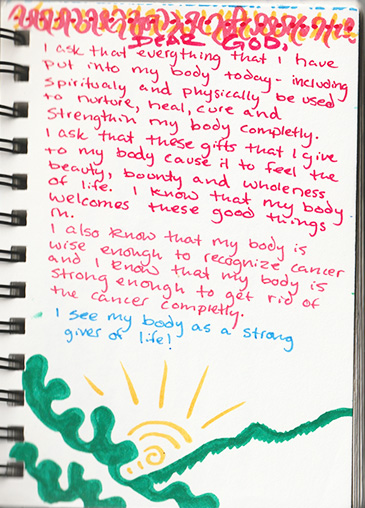 DEAR GOD,
I ask that everything that I have
put into my body today - including
spiritualy and physically be used
to nurture, heal, cure and
strengthin my body completly.
I ask that these gifts that I give
to my body cause it to feel the
beauty, bounty and wholeness
of life. I know that my body
welcomes these good things
in.
I also know that my body is
wise enough to recognize cancer
and I know that my body is
strong enough to get rid of
the cancer completly.
I see my body as a strong
giver of life!